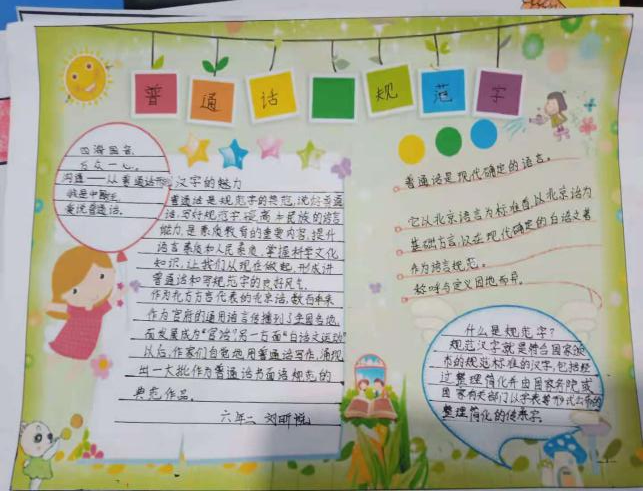 普通话 规范字
四海同音
万众一心。
沟通——从普通话开始
我是中国人
爱说普通话。
汉字的魅力
普通话是规范字的典范,说好普通
话,写好规范字,提高本民族的语言
能力,是素质教育的重要内容,提升
语言素质和人民素质,掌握科学文化
知识,让我们从现在做起,形成讲
普通话和写规范字的良好风气。
作为北方方言代表的北京话,数百年来
作为官府的通用语言传播到了全国各地,
而发展成为"官话",另一方面"白话文运动"
以后,作家们自觉地用普通话写作,涌现
出一大批作为普通话书面语规范的
典范作品。
六年二 刘昕悦
普通话是现代确定的语言。
它以北京语言为标准音,以北京话为
基础方言,以在现代确定的白话文著
作为语言规范。
称呼与定义因地而异。
什么是规范字?
规范汉字就是符合国家颁
布的规范标准的汉字,包括经
过整理简化并由国家务院或
国家有关部门以字表等形式公布的
整理简化的传承字